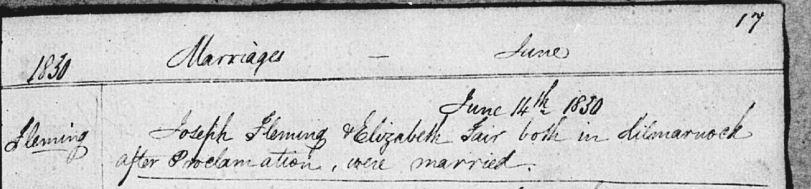 17
1830 Marriages — June
June 14th 1830
Fleming Joseph Fleming & Elizabeth Fair both in Kilmarnock
after Proclamation, were married.